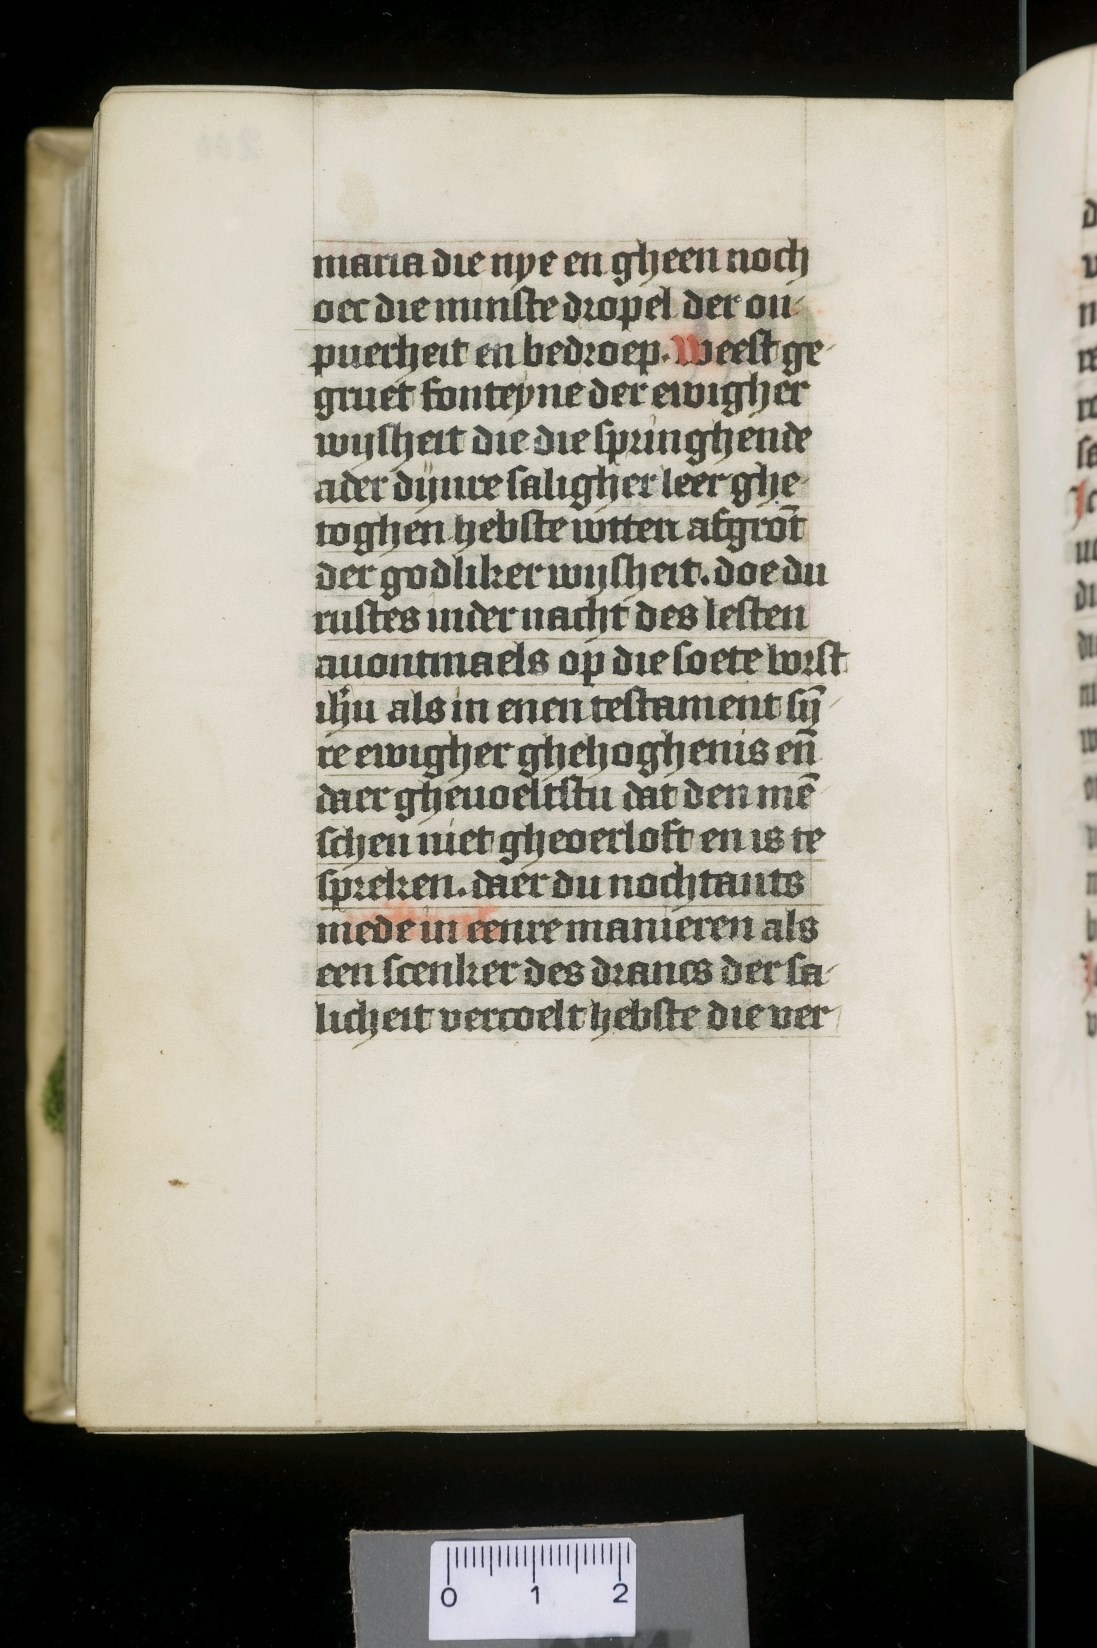 maria die nye en gheen noch
oec die minste dropel der on-
puerheit en bedroep. Weest ge-
gruet fonteyne der ewigher
wijsheit die die springhende
ader dijnre saligher leer ghe-
toghen hebste wtten afgrōt
der godliker wijsheit. doe du
rustes inder nacht des lesten
auontmaels op die soete borst
ihū als in enen testament sij̄-
re ewigher ghehoghenis en̄
daer gheuoeltstu dat den mē-
schen niet gheoerloft en is te
spreken. daer du nochtants
mede in eenre manieren als
een scenker des drancs der sa-
licheit vercoelt hebste die ver
0 1 2